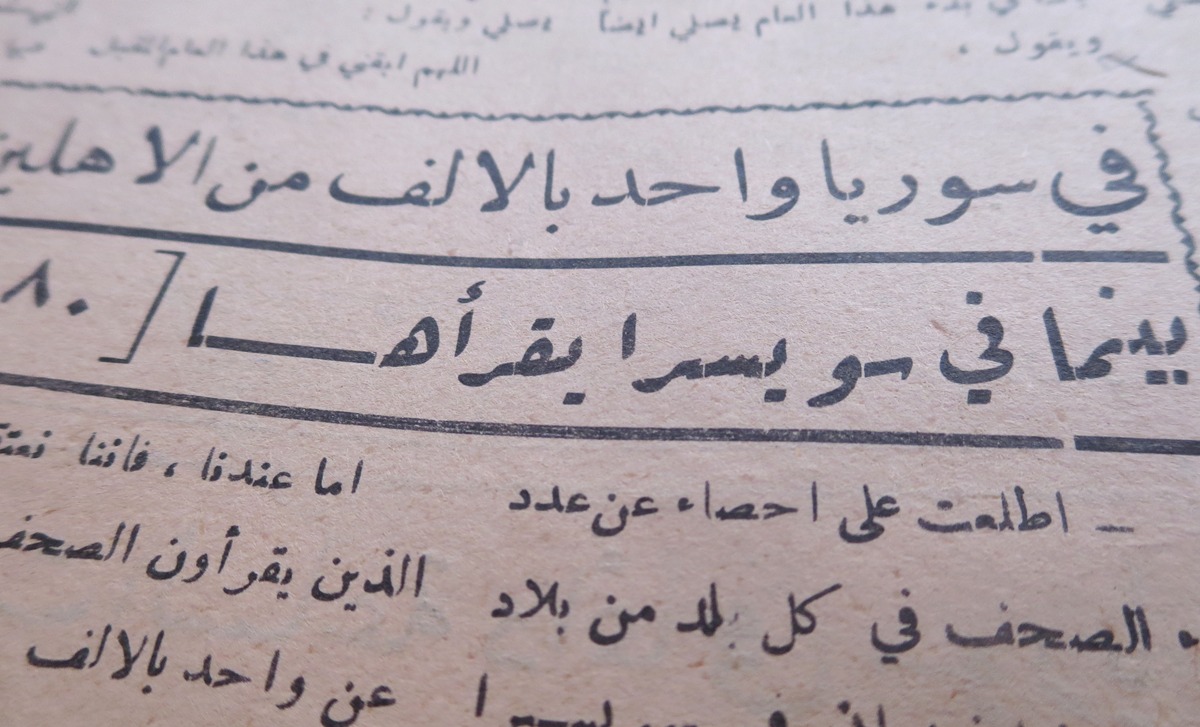 هذا العام يصلي ايضاً
يصلي ويقول :
ويقول .
اللهم ابقني في هذا العام
في سوريا واحد بالالف من الاهلين
بينما في سويسرا يقرأها [ ٨٠
ــ اطلعت على احصاء عن عدد
الصحف في كل بلد من بلاد
اما عندنا ، فاننا
الذين يقرأون الصحف
عن واحد بالالف